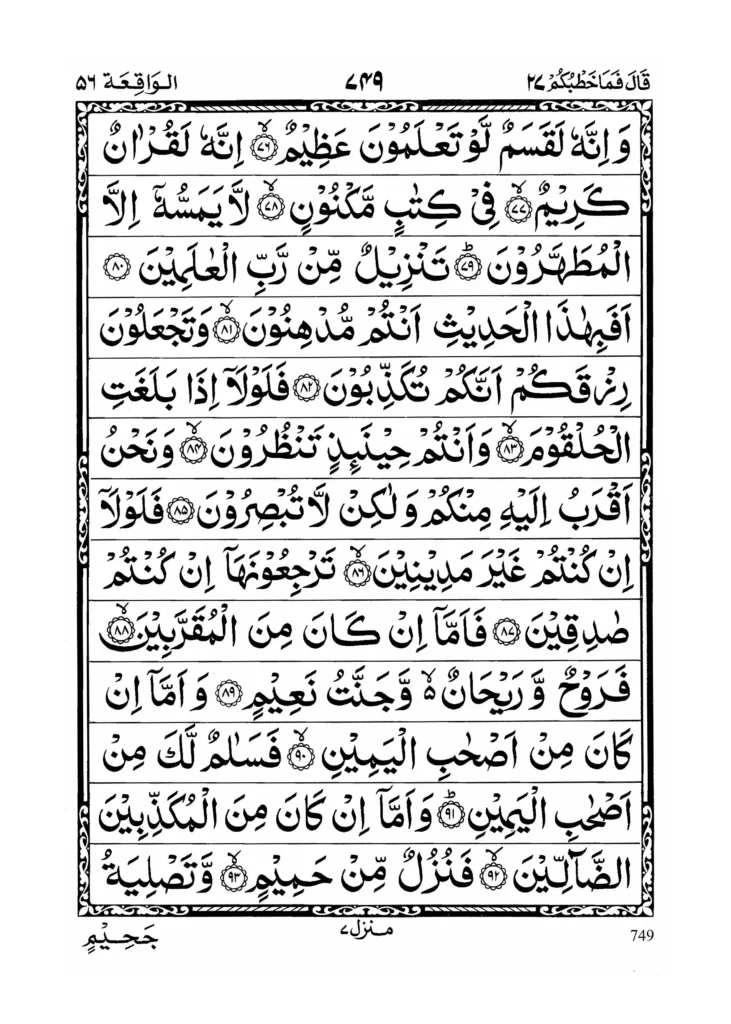 قَالَ فَمَا خَطْبُكُمْ ٢٧
٧٤٩
الواقعة ٥٦
وَ اِنَّهٗ لَقَسَمٌ لَّوْ تَعْلَمُوْنَ عَظِيْمٌ ۙ﴿٧٦﴾ اِنَّهٗ لَقُرْاٰنٌ
كَرِيْمٌ ۙ﴿٧٧﴾ فِيْ كِتٰبٍ مَّكْنُوْنٍ ۙ﴿٧٨﴾ لَّا يَمَسُّهٗٓ اِلَّا
الْمُطَهَّرُوْنَ ؕ﴿٧٩﴾ تَنْزِيْلٌ مِّنْ رَّبِّ الْعٰلَمِيْنَ ﴿٨٠﴾
اَفَبِهٰذَا الْحَدِيْثِ اَنْتُمْ مُّدْهِنُوْنَ ۙ﴿٨١﴾ وَتَجْعَلُوْنَ
رِزْقَكُمْ اَنَّكُمْ تُكَذِّبُوْنَ ﴿٨٢﴾ فَلَوْلَاۤ اِذَا بَلَغَتِ
الْحُلْقُوْمَ ۙ﴿٨٣﴾ وَاَنْتُمْ حِيْنَىِٕذٍ تَنْظُرُوْنَ ۙ﴿٨٤﴾ وَنَحْنُ
اَقْرَبُ اِلَيْهِ مِنْكُمْ وَ لٰكِنْ لَّا تُبْصِرُوْنَ ﴿٨٥﴾ فَلَوْلَاۤ
اِنْ كُنْتُمْ غَيْرَ مَدِيْنِيْنَ ۙ﴿٨٦﴾ تَرْجِعُوْنَهَاۤ اِنْ كُنْتُمْ
صٰدِقِيْنَ ﴿٨٧﴾ فَاَمَّاۤ اِنْ كَانَ مِنَ الْمُقَرَّبِيْنَ ۙ﴿٨٨﴾
فَرَوْحٌ وَّ رَيْحَانٌ ۙ۬ وَّجَنَّتُ نَعِيْمٍ ﴿٨٩﴾ وَ اَمَّاۤ اِنْ
كَانَ مِنْ اَصْحٰبِ الْيَمِيْنِ ۙ﴿٩٠﴾ فَسَلٰمٌ لَّكَ مِنْ
اَصْحٰبِ الْيَمِيْنِ ؕ﴿٩١﴾ وَاَمَّاۤ اِنْ كَانَ مِنَ الْمُكَذِّبِيْنَ
الضَّآلِّيْنَ ۙ﴿٩٢﴾ فَنُزُلٌ مِّنْ حَمِيْمٍ ۙ﴿٩٣﴾ وَّتَصْلِيَةُ
منزل ٧
جَحِيْمٍ
749